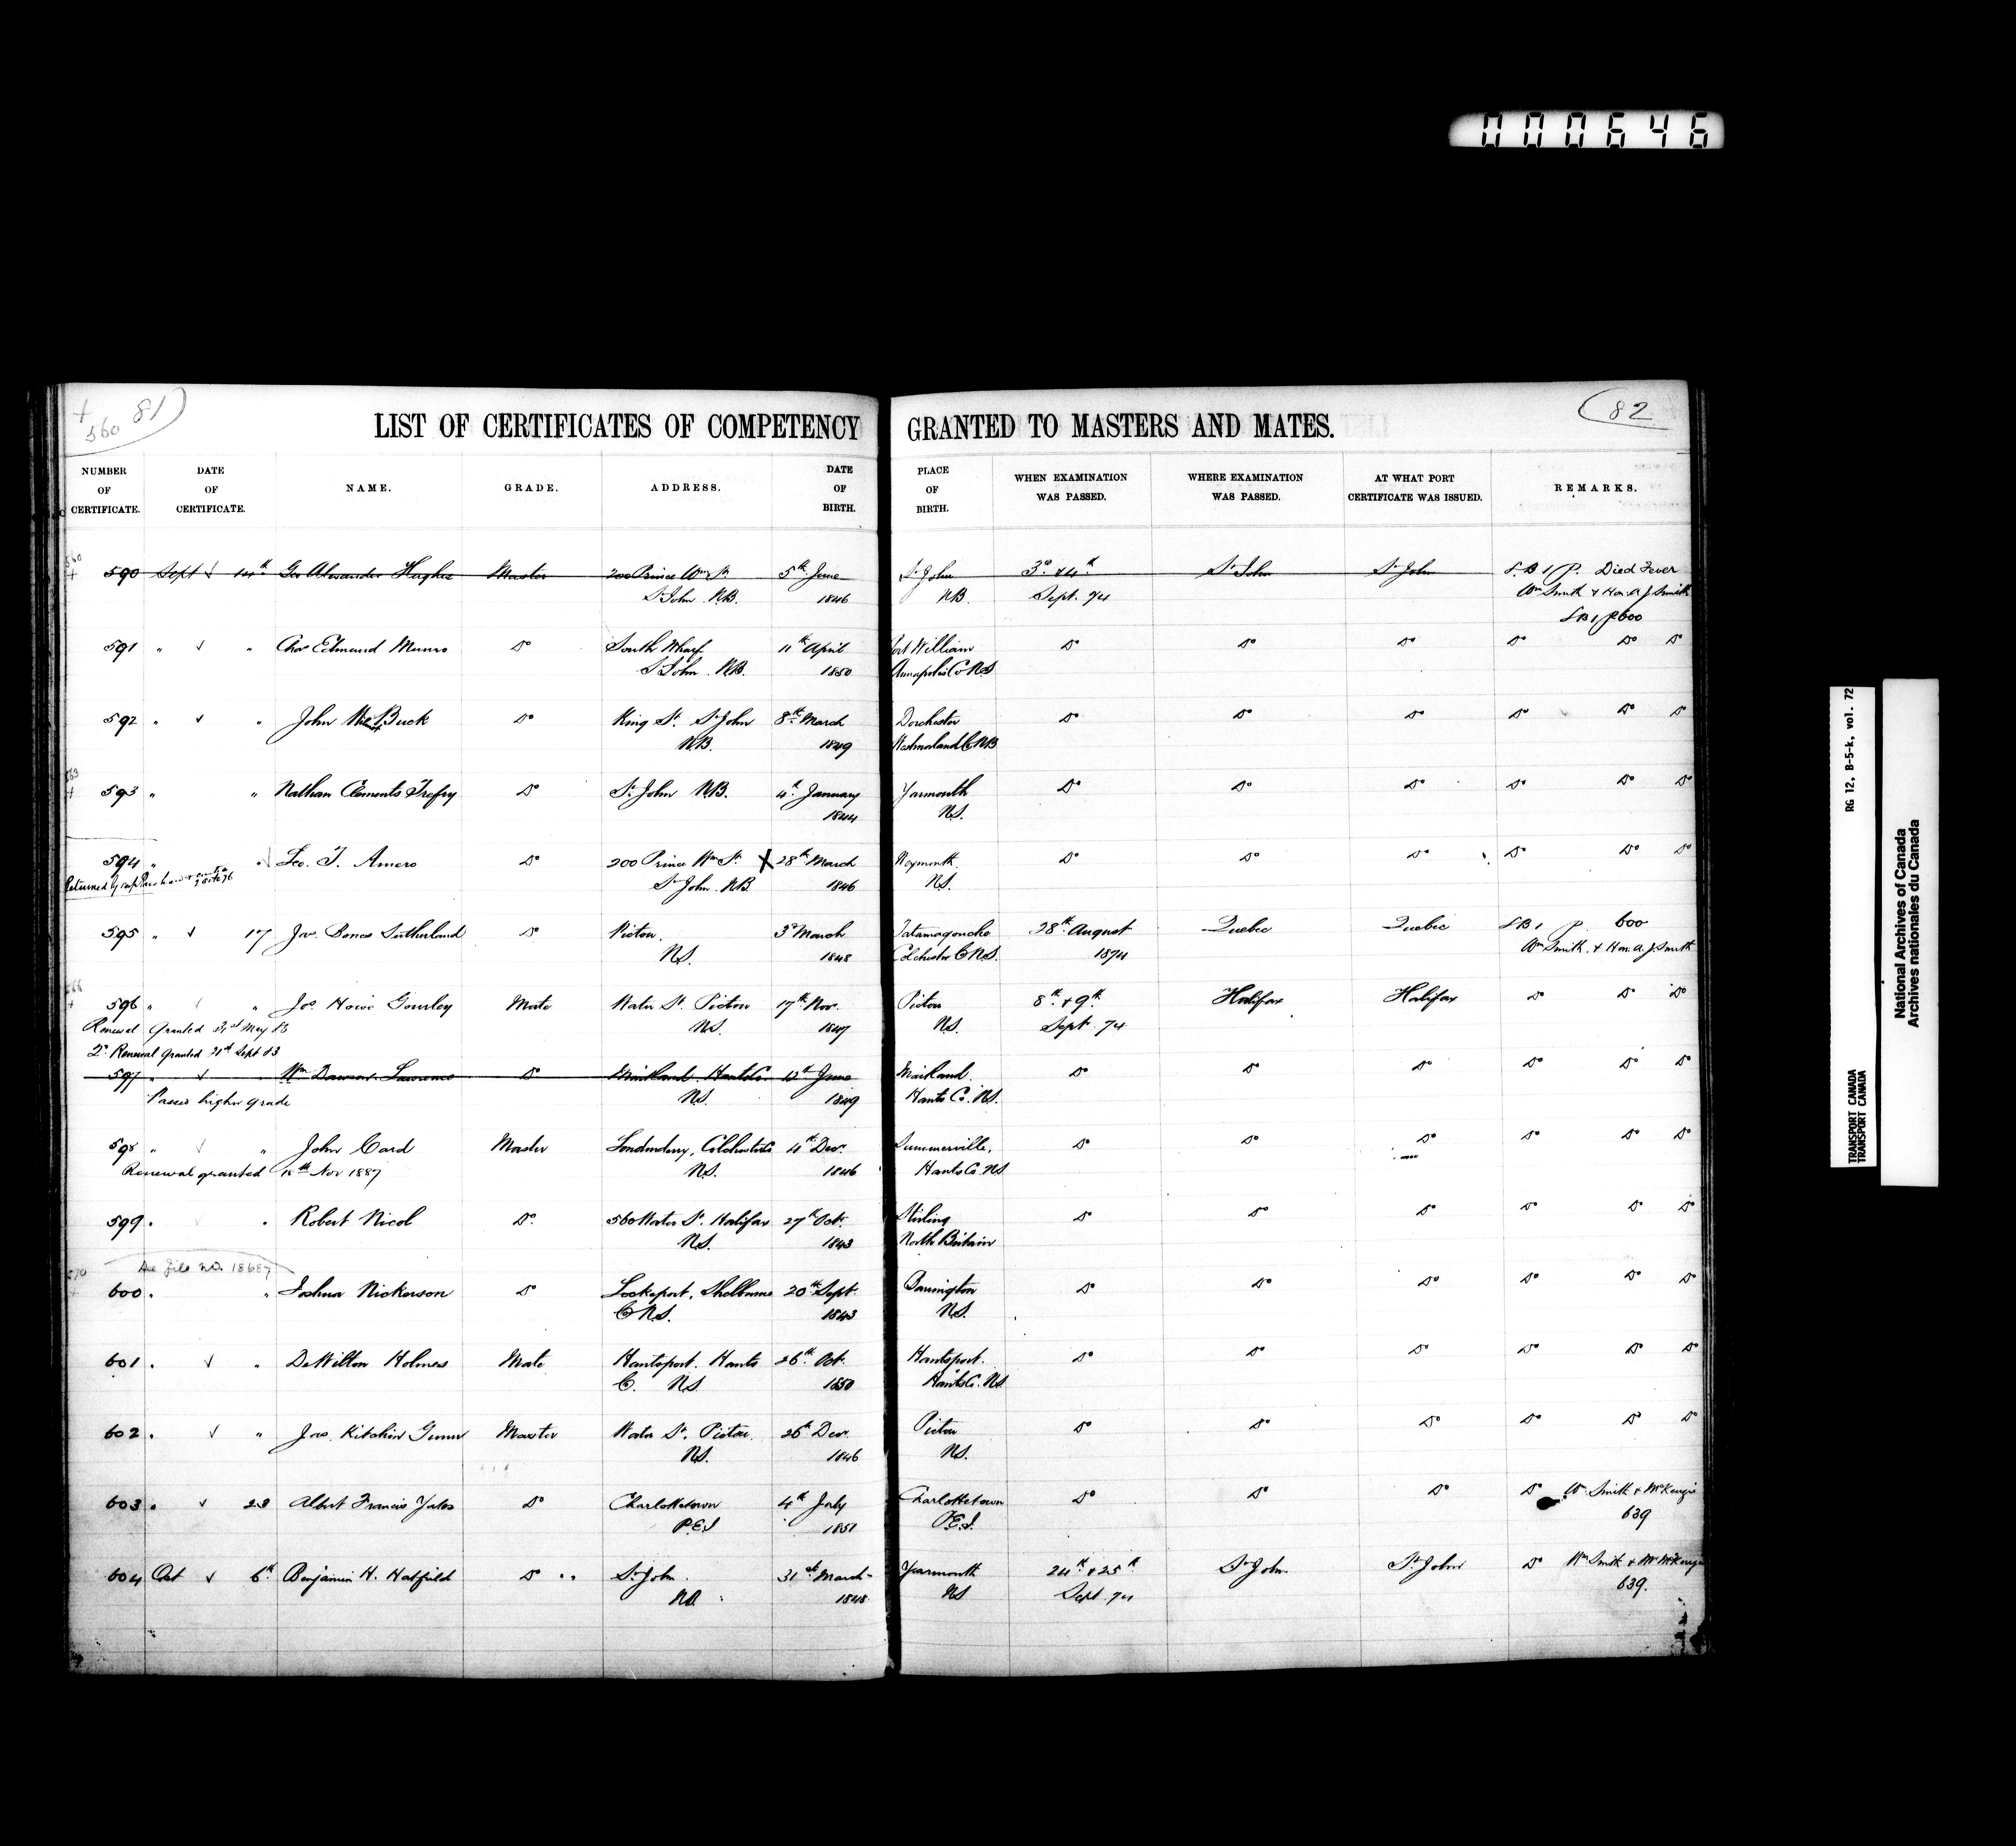 000646
+ 560 81
82
LIST OF CERTIFICATES OF COMPETENCY GRANTED TO MASTERS AND MATES.
NUMBER OF CERTIFICATE. DATE OF CERTIFICATE. NAME. GRADE. ADDRESS. DATE OF BIRTH. PLACE OF BIRTH. WHEN EXAMINATION WAS PASSED. WHERE EXAMINATION WAS PASSED. AT WHAT PORT CERTIFICATE WAS ISSUED. REMARKS.
560
+ 590 Sept √ 14th Geo Alexander Hughes Master 200 Prince Wm St. 5th June St John 3d & 4th St John St John S.B 1 P. Died Fever
St John. N.B. 1846 N.B. Sept. 74 Wm Smith & Hon. A. J. Smith
S.B 1 P 600
591 " √ " Chas Edmund Munro Do South Wharf 11th April Port William Do Do Do Do Do Do
St John. N.B. 1850 Annapolis Co N.S
592 " √ " John Buck Do King St. St John 8th March Dorchester Do Do Do Do Do Do
N.B. 1849 Westmorland Co N.B
563
+ 593 " " Nathan Clements Trefry Do St. John N.B. 4th January Yarmouth Do Do Do Do Do Do
1844 N.S.
594 " " √ Geo. T. Amero Do 200 Prince Wm St. X 28th March Weymouth Do Do Do Do Do Do
Returned by
St John. N.B. 1846 N.S.
595 " √ 17 Jas. Sutherland Do Pictou. 3d March Tatamagouche 28th August Quebec Quebec S.B 1 P. 600
N.S. 1848 Colchester Co N.S. 1874 Wm Smith. & Hon. A. J. Smith
566
+ 596 " √ " Jos Howe Gourley Mate Water St. Pictou 17th Nov. Pictou 8th & 9th Halifax Halifax Do Do Do
Renewal Granted May 83 N.S. 1847 N.S. Sept. 74
2d Renewal granted 21st Sept 83
597 " √ " Wm Dawson Lawrence Do Maitland. Hants Co. 12th June Maitland. Do Do Do Do Do Do
Passed higher grade N.S. 1849 Hants Co. N.S.
598 " √ " John Card Master Londonderry, Colchester Co 4th Dec. Summerville, Do Do Do Do Do Do
Renewal granted Nov 1887 N.S. 1846 Hants Co. N.S
599 " √ " Robert Nicol Do. 560 Water St. Halifax 27th Oct. Stirling Do Do Do Do Do Do
N.S. 1843 North Britain
See file no. 18687
570
+ 600 " " Joshua Nickerson Do Lockeport, Shelburne 20th Sept. Barrington Do Do Do Do Do Do
Co N.S. 1843 N.S.
601 " √ " DeWilton Holmes Mate Hantsport. Hants 26th Oct. Hantsport. Do Do Do Do Do Do
Co. N.S. 1850 Hants Co. N.S
602 " √ " Jas. Kitchin Gunn Master Water St. Pictou. 26th Dec. Pictou Do Do Do Do Do Do
N.S. 1846 N.S.
603 " √ 23 Albert Francis Yates Do Charlottetown 4th July Charlottetown Do Do Do Do Wm. Smith & McKenzie
P.E.I 1851 P.E.I. 639
604 Oct √ 6th Benjamin H. Hatfield Do " " St. John. 31st March Yarmouth 24th & 25th St John. St John Do Wm Smith & Mr McKenzie
NB. 1848 NS Sept. 74 639.
RG 12, B-5-k, vol. 72
TRANSPORT CANADA
TRANSPORT CANADA
National Archives of Canada
Archives nationales du Canada